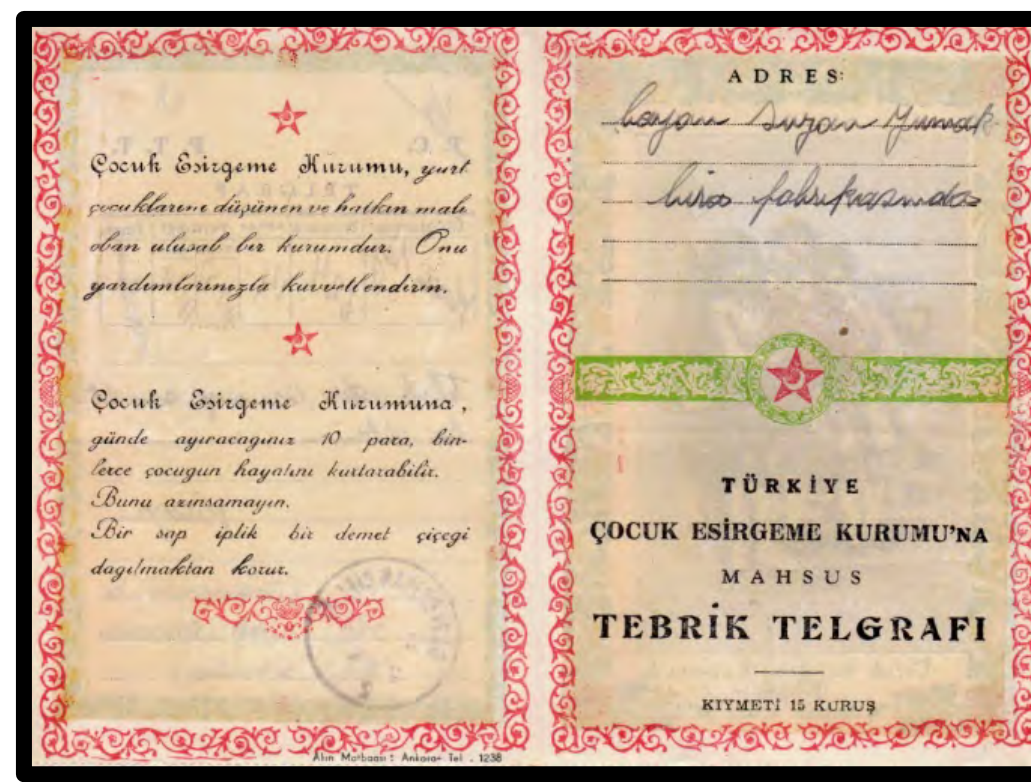 Çocuk Esirgeme Kurumu, yurt
çocuklarını düşünen ve halkın malı
olan ulusal bir kurumdur. Onu
yardımlarınızla kuvvetlendirin.
Çocuk Esirgeme Kurumuna,
günde ayıracagınız 10 para, bin-
lerce çocugun hayatını kurtarabilir.
Bunu azınsamayın.
Bir sap iplik bir demet çiçegi
dagılmaktan korur.
Alın Matbaası : Ankara - Tel . 1238
ADRES:
bayan Suzan Yumak
bira fabrikasında
TÜRKİYE
ÇOCUK ESİRGEME KURUMU'NA
MAHSUS
TEBRİK TELGRAFI
KIYMETİ 15 KURUŞ